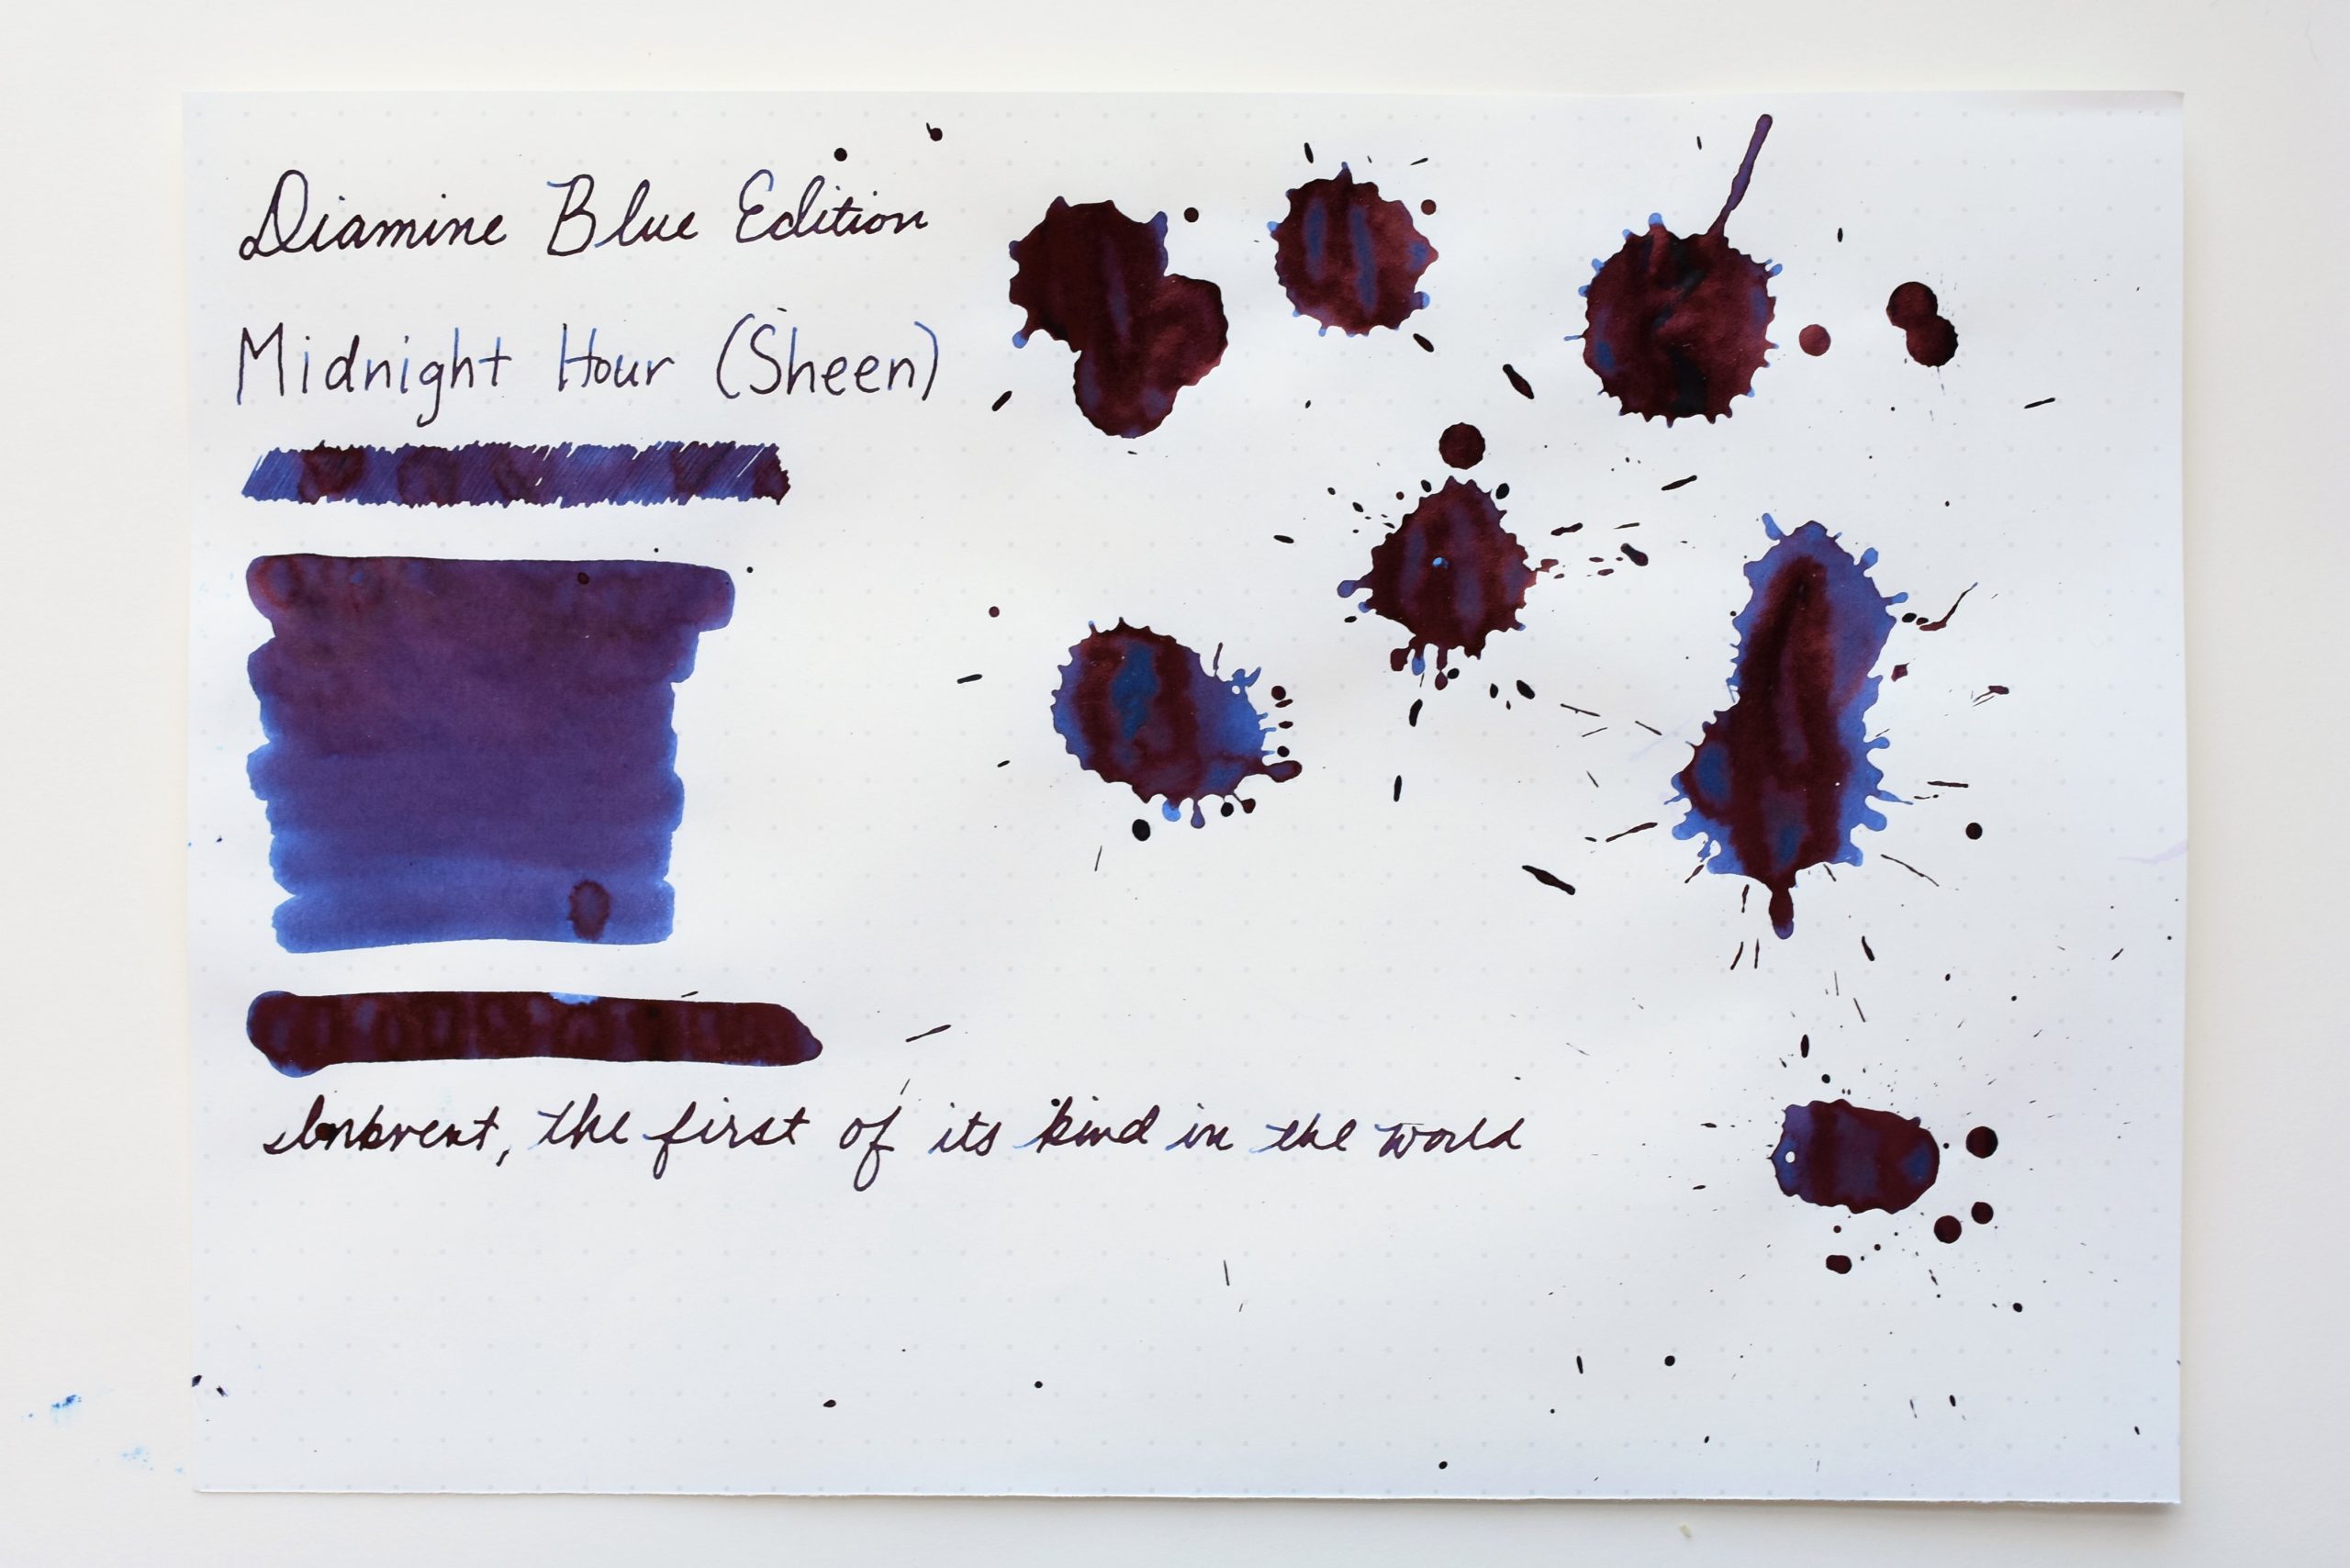 Diamine Blue Edition
Midnight Hour (Sheen)
Inkvent, the first of its kind in the world